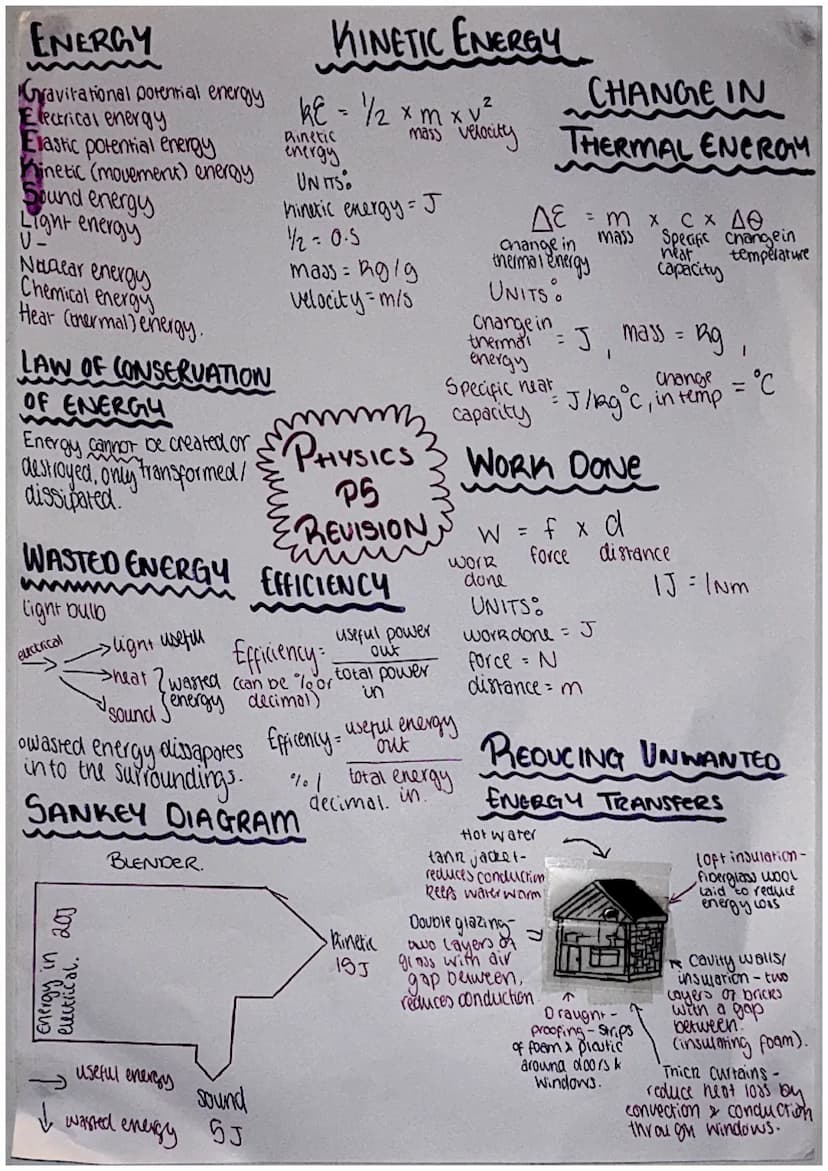 ENERGY
Gravitational potential energy
Electrical energy
Elastic potential energy
Kinetic (movement) energy
Sound energy
Light energy
U-
Nuclear energy
Chemical energy
Heat (thermal) energy.
KINETIC ENERGY
KE = 1/2 x m x v²
Kinetic energy mass velocity
UNITS:
kinetic energy = J
1/2 = 0.5
mass = kg/g
velocity = m/s
CHANGE IN
THERMAL ENERGY
ΔE = m x c x Δθ
change in thermal energy mass specific heat capacity change in temperature
UNITS:
Change in thermal energy = J, mass = kg,
Specific heat capacity = J/kg°C, change in temp = °C
LAW OF CONSERVATION
OF ENERGY
Energy cannot be created or
destroyed, only transformed/
dissipated.
PHYSICS
P5
REVISION
WORK DONE
W = f x d
work done force distance
1J = 1Nm
UNITS:
work done = J
force = N
distance = m
WASTED ENERGY
light bulb
electrical
light useful
heat
sound
wasted
energy
o wasted energy dissapates
into the surroundings.
EFFICIENCY
Efficiency = useful power out
total power in
(can be % or
decimal)
Efficency = useful energy out
total energy in.
% /
decimal.
SANKEY DIAGRAM
BLENDER.
Energy in
electrical. 20J
Kinetic
15J
sound
5J
useful energy
wasted energy
REDUCING UNWANTED
ENERGY TRANSFERS
Hot water
tank jacket-
reduces conduction
keeps water warm
loft insulation-
fiberglass wool
laid to reduce
energy loss
Double glazing-
two layers of
glass with air
gap between,
reduces conduction
Cavity walls/
insulation - two
layers of bricks
with a gap
between.
(insulating foam).
Draught-
proofing - strips
of foam & plastic
around doors &
windows.
Thick curtains -
reduce heat loss by
convection & conduction
through windows.